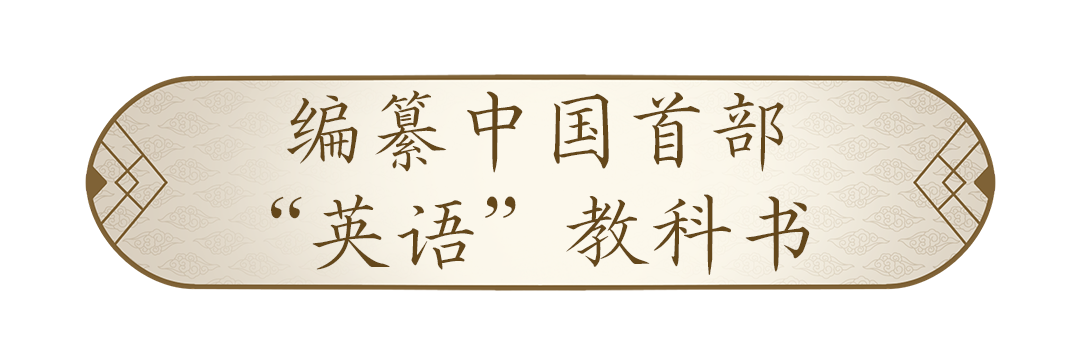 编纂中国首部
“英语”教科书